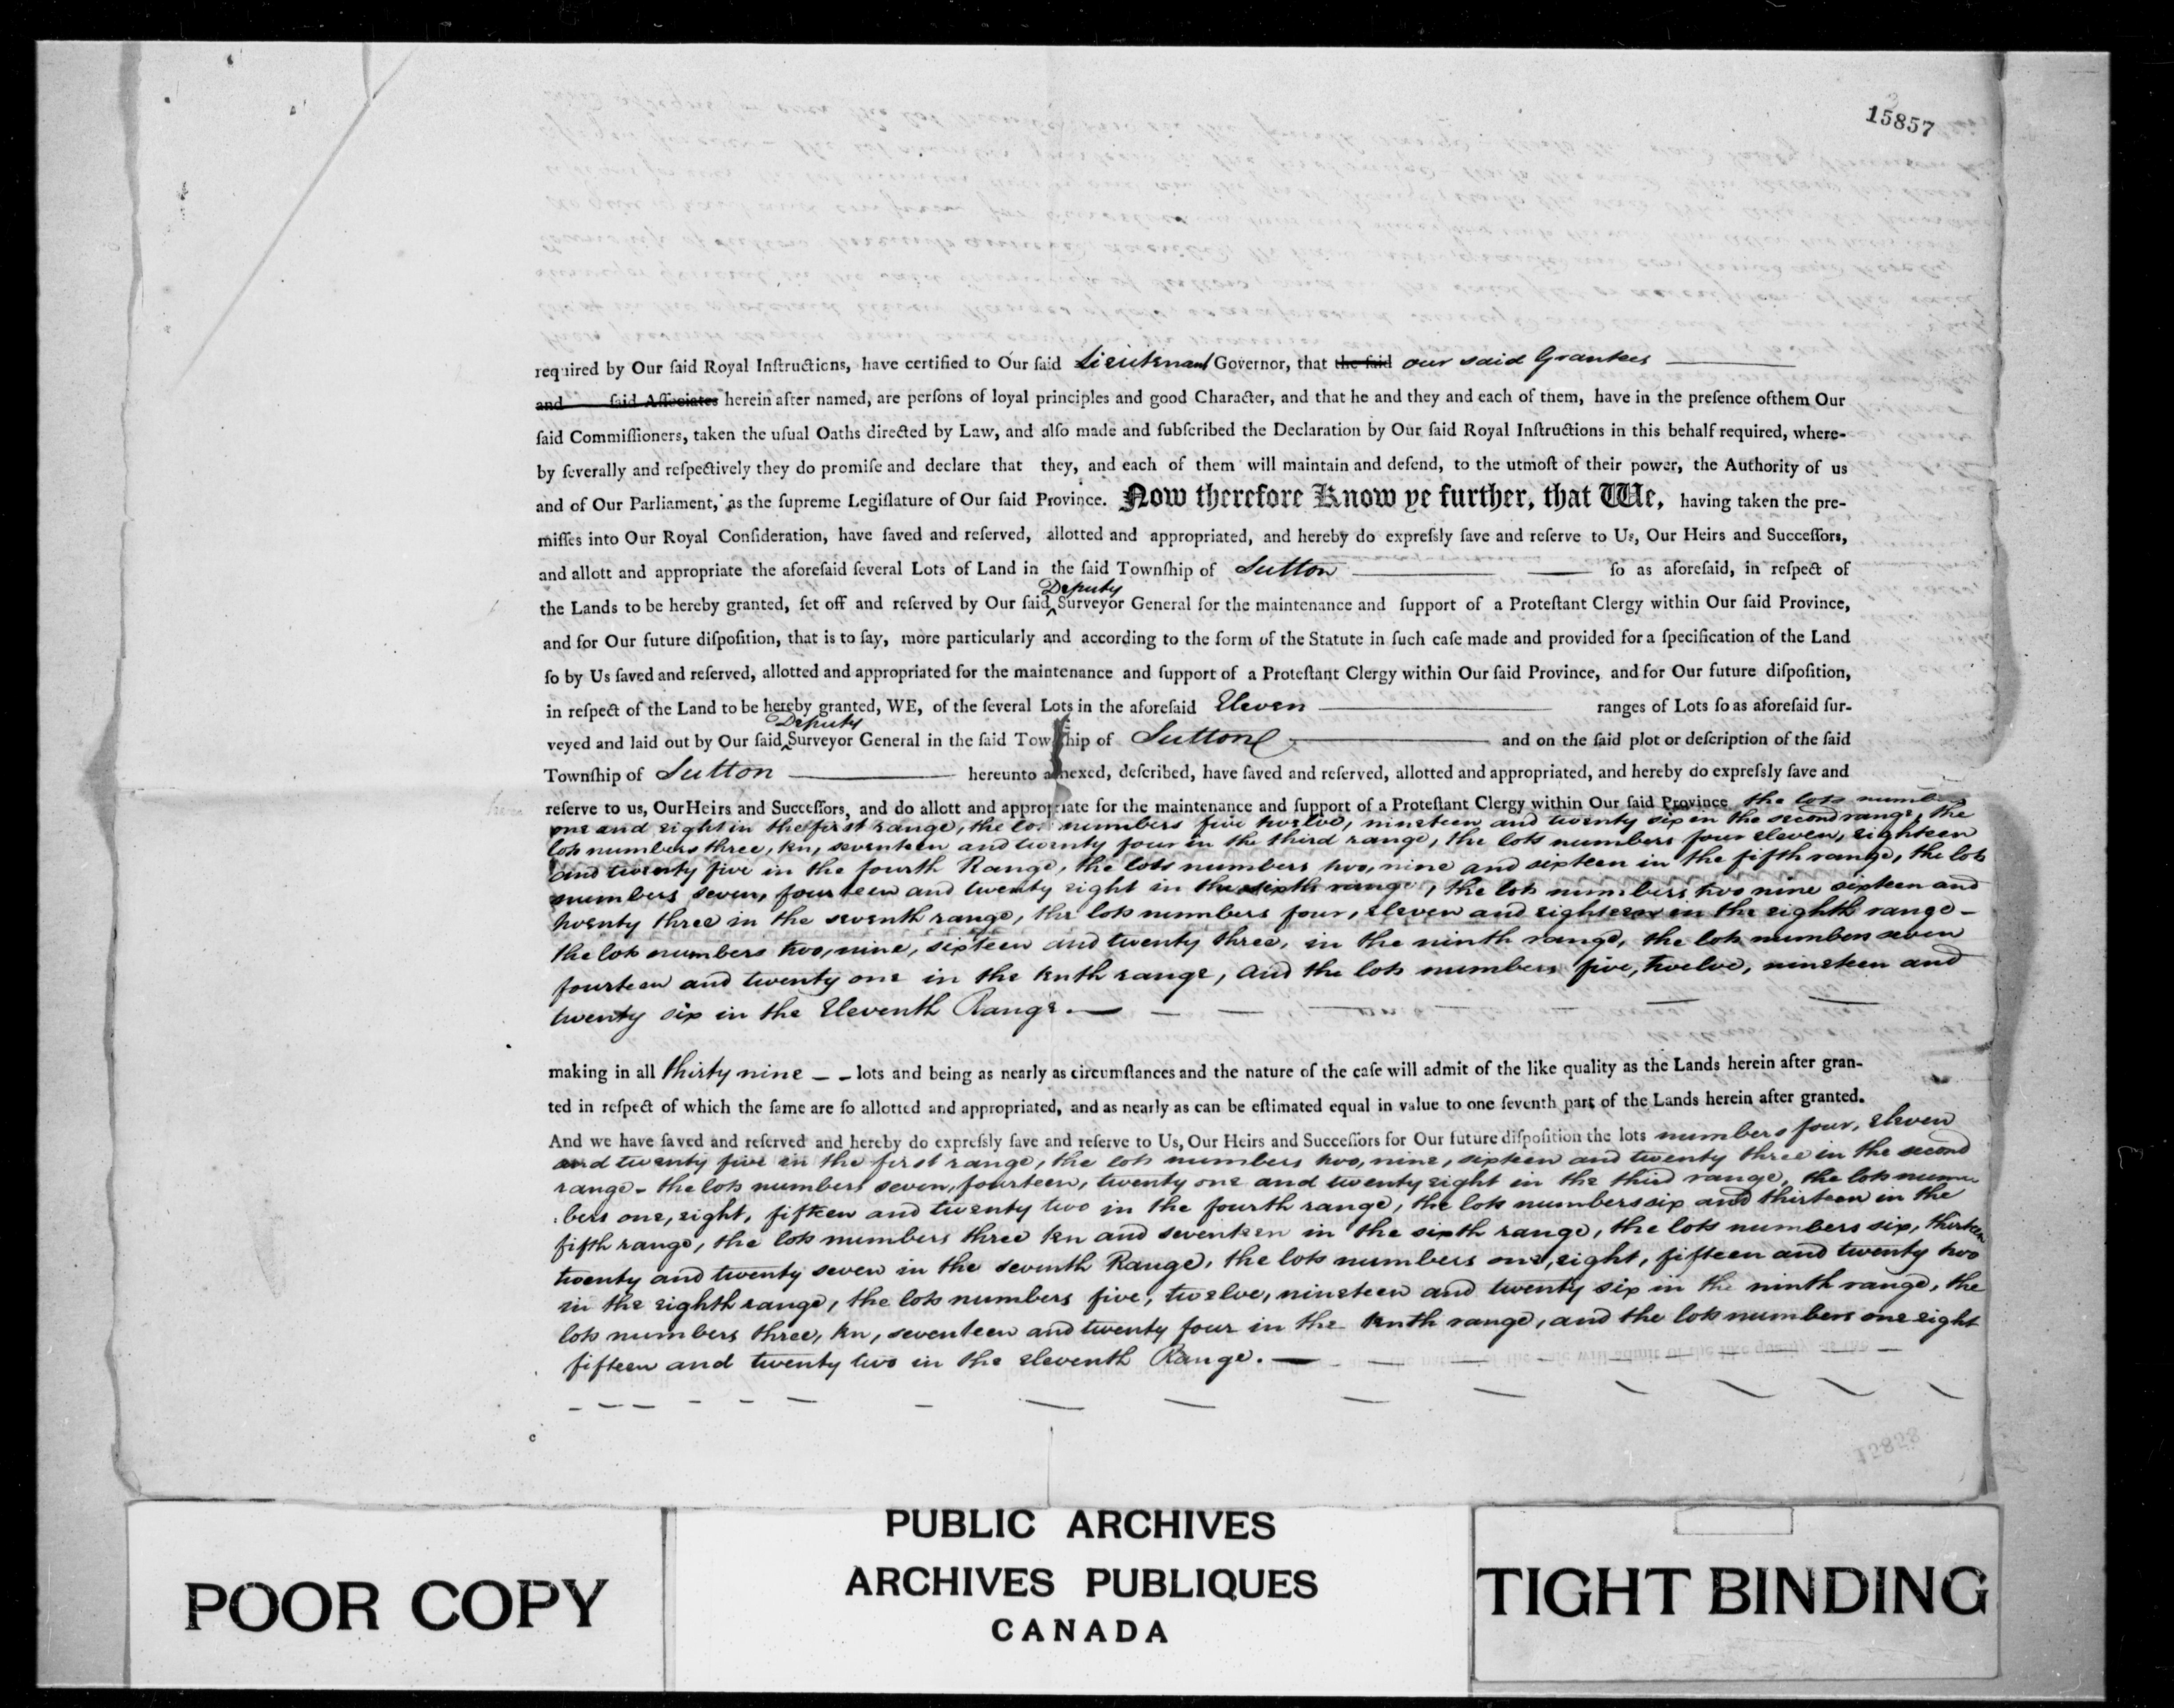 15857
required by Our ſaid Royal Inſtructions, have certified to Our ſaid Lieutenant Governor, that the ſaid our said Grantees
and ſaid Aſſociates herein after named, are perſons of loyal principles and good Character, and that he and they and each of them, have in the preſence ofthem Our
ſaid Commiſſioners, taken the uſual Oaths directed by Law, and alſo made and ſubſcribed the Declaration by Our ſaid Royal Inſtructions in this behalf required, where-
by ſeverally and reſpectively they do promiſe and declare that they, and each of them will maintain and defend, to the utmoſt of their power, the Authority of us
and of Our Parliament, as the ſupreme Legiſlature of Our ſaid Province. Now therefore Know ye further, that We, having taken the pre-
miſſes into Our Royal Conſideration, have ſaved and reſerved, allotted and appropriated, and hereby do expreſsly ſave and reſerve to Us, Our Heirs and Succeſſors,
and allott and appropriate the aforeſaid ſeveral Lots of Land in the ſaid Townſhip of Sutton ſo as aforeſaid, in reſpect of
Deputy
the Lands to be hereby granted, ſet off and reſerved by Our ſaid ^ Surveyor General for the maintenance and ſupport of a Proteſtant Clergy within Our ſaid Province,
and for Our future diſpoſition, that is to ſay, more particularly and according to the form of the Statute in ſuch caſe made and provided for a ſpecification of the Land
ſo by Us ſaved and reſerved, allotted and appropriated for the maintenance and ſupport of a Proteſtant Clergy within Our ſaid Province, and for Our future diſpoſition,
in reſpect of the Land to be hereby granted, WE, of the ſeveral Lots in the aforeſaid Eleven ranges of Lots ſo as aforeſaid ſur-
Deputy
veyed and laid out by Our ſaid ^ Surveyor General in the ſaid Townſhip of Sutton and on the ſaid plot or deſcription of the ſaid
Townſhip of Sutton hereunto annexed, deſcribed, have ſaved and reſerved, allotted and appropriated, and hereby do expreſsly ſave and
reſerve to us, Our Heirs and Succeſſors, and do allott and appropriate for the maintenance and ſupport of a Proteſtant Clergy within Our ſaid Province the lots numbers
one and eight in the first range, the lots numbers five twelve, nineteen and twenty six in the second range, the
lots numbers three, ten, seventeen and twenty four in the third range, the lots numbers four eleven, eighteen
and twenty five in the fourth Range, the lots numbers two, nine and sixteen in the fifth range, the lots
numbers seven, fourteen and twenty eight in the sixth range, the lots numbers two nine sixteen and
twenty three in the seventh range, the lots numbers four, eleven and eighteen in the eighth range -
the lots numbers two, nine, sixteen and twenty three, in the ninth range, the lots numbers seven
fourteen and twenty one in the tenth range, and the lots numbers five, twelve, nineteen and
twenty six in the Eleventh Range.
making in all thirty nine - - lots and being as nearly as circumſtances and the nature of the caſe will admit of the like quality as the Lands herein after gran-
ted in reſpect of which the ſame are ſo allotted and appropriated, and as nearly as can be eſtimated equal in value to one ſeventh part of the Lands herein after granted.
And we have ſaved and reſerved and hereby do expreſsly ſave and reſerve to Us, Our Heirs and Succeſſors for Our future diſpoſition the lots numbers four, eleven
and twenty five in the first range, the lots numbers two, nine, sixteen and twenty three in the second
range - the lots numbers seven, fourteen, twenty one and twenty eight in the third range, the lots num
bers one, eight, fifteen and twenty two in the fourth range, the lots numbers six and thirteen in the
fifth range, the lots numbers three ten and seventeen in the sixth range, the lots numbers six, thirteen
twenty and twenty seven in the seventh Range, the lots numbers one, eight, fifteen and twenty two
in the eighth range, the lots numbers five, twelve, nineteen and twenty six in the ninth range, the
lots numbers three, ten, seventeen and twenty four in the tenth range, and the lots numbers one eight
fifteen and twenty two in the eleventh Range.
15858
POOR COPY
PUBLIC ARCHIVES
ARCHIVES PUBLIQUES
CANADA
TIGHT BINDING